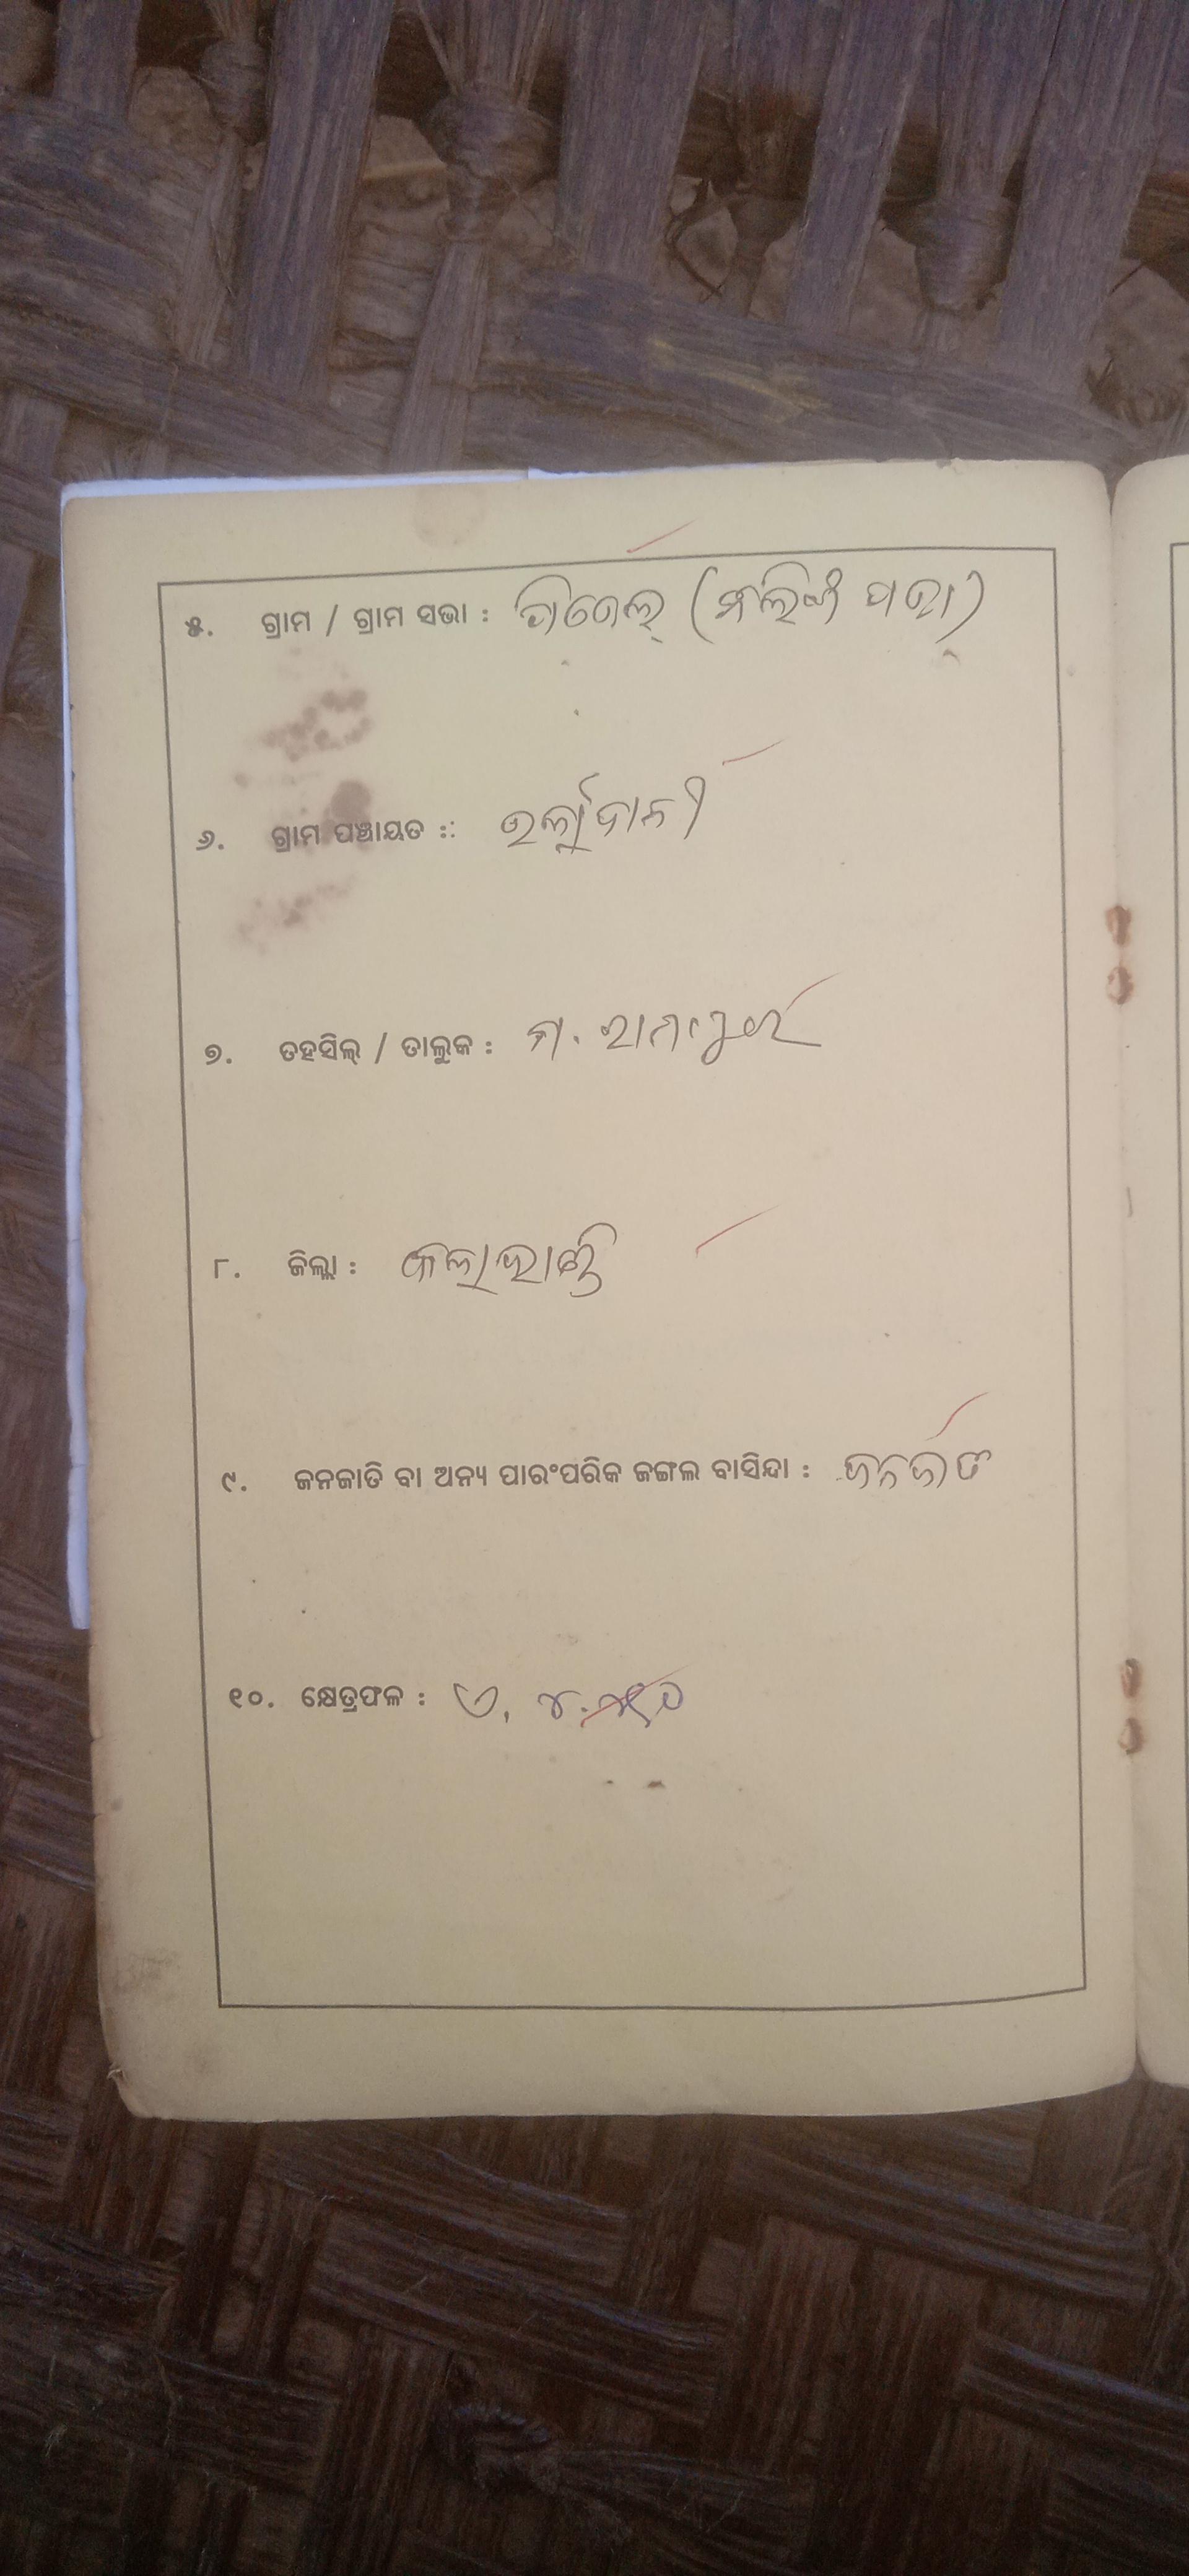 ୫. ଗ୍ରାମ / ଗ୍ରାମ ସଭା :
୬. ଗ୍ରାମ ପଞ୍ଚାୟତ :: ଉର୍ଲାଦାନୀ
୭. ତହସିଲ୍ / ତାଲୁକ : ମ. ରାମପୁର
୮. ଜିଲ୍ଲା : କଳାହାଣ୍ଡି
୯. ଜନଜାତି ବା ଅନ୍ୟ ପାରଂପରିକ ଜଙ୍ଗଲ ବାସିନ୍ଦା : ଜନଜାତି
୧୦. କ୍ଷେତ୍ରଫଳ : ଏ.